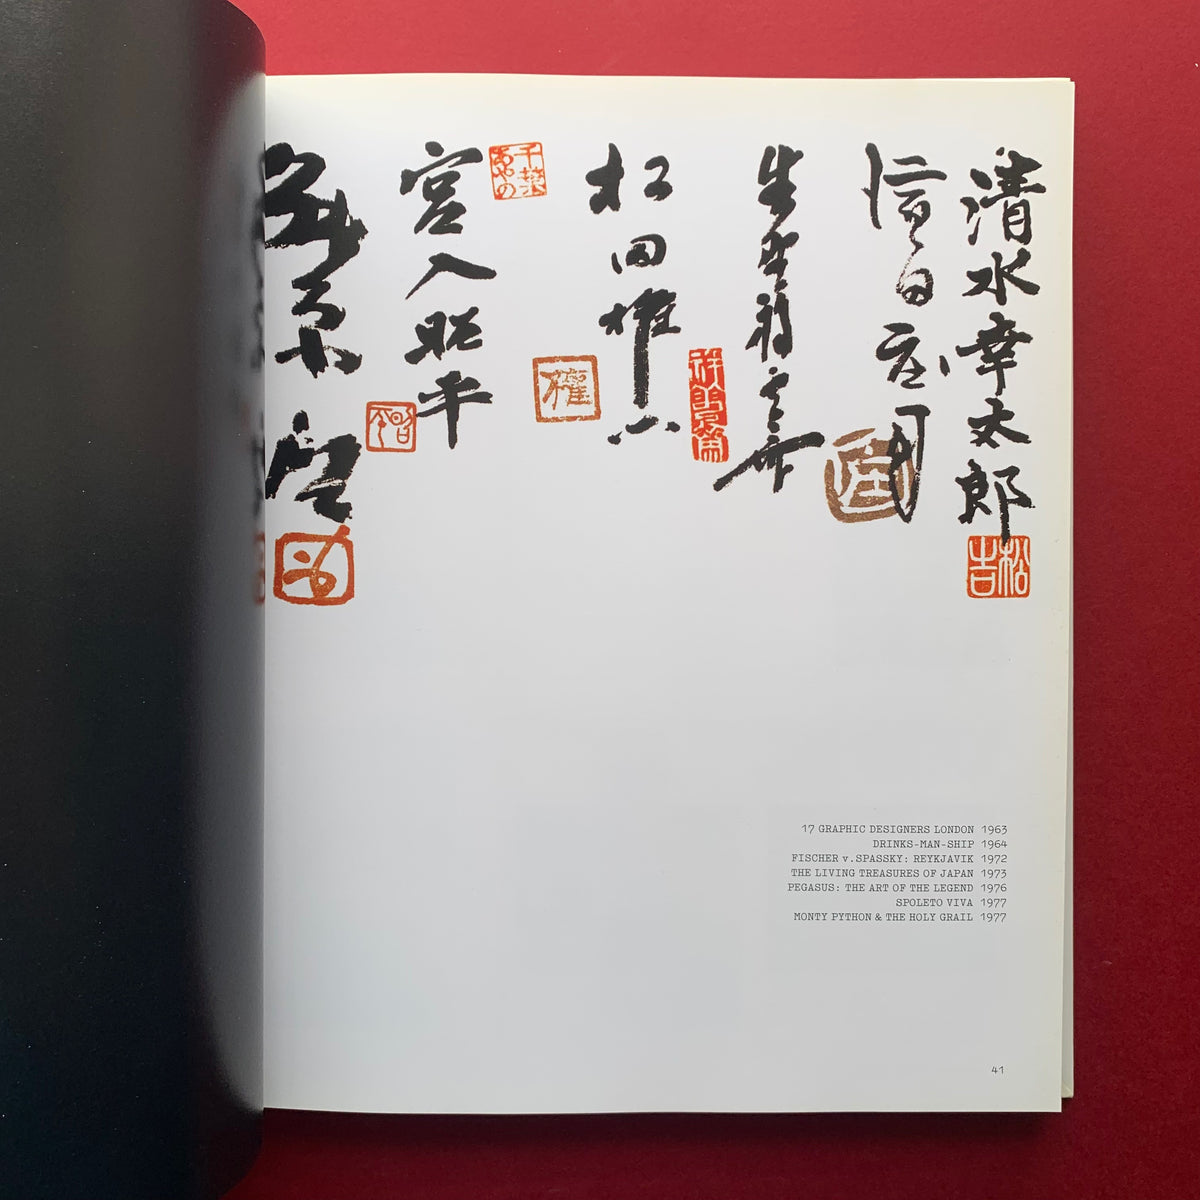 清水幸太郎
松吉
濱田庄司
生野祥雲斎
松田権六
権
千葉あやの
宮入昭平
昭平
17 GRAPHIC DESIGNERS LONDON 1963
DRINKS-MAN-SHIP 1964
FISCHER v. SPASSKY: REYKJAVIK 1972
THE LIVING TREASURES OF JAPAN 1973
PEGASUS: THE ART OF THE LEGEND 1976
SPOLETO VIVA 1977
MONTY PYTHON & THE HOLY GRAIL 1977
41